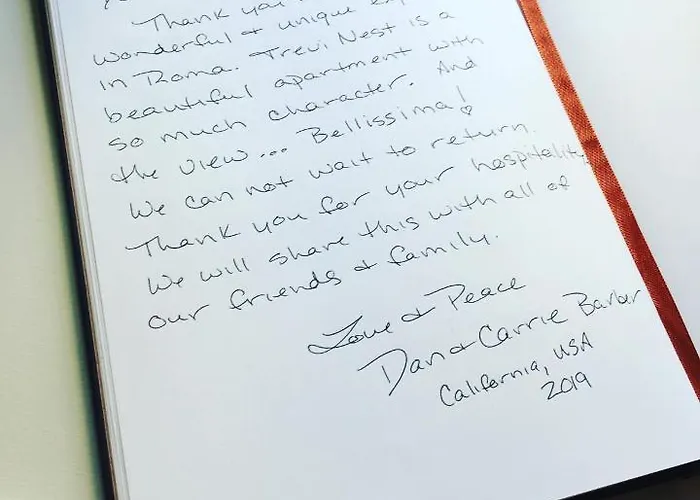 Thank you
wonderful & unique
in Roma. Trevi Nest is a
beautiful apartment with
so much character. And
the view... Bellissima!
We can not wait to return.
Thank you for your hospitality
We will share this with all of
our friends & family.
Love & Peace
Dan & Carrie Barber
California, USA
2019